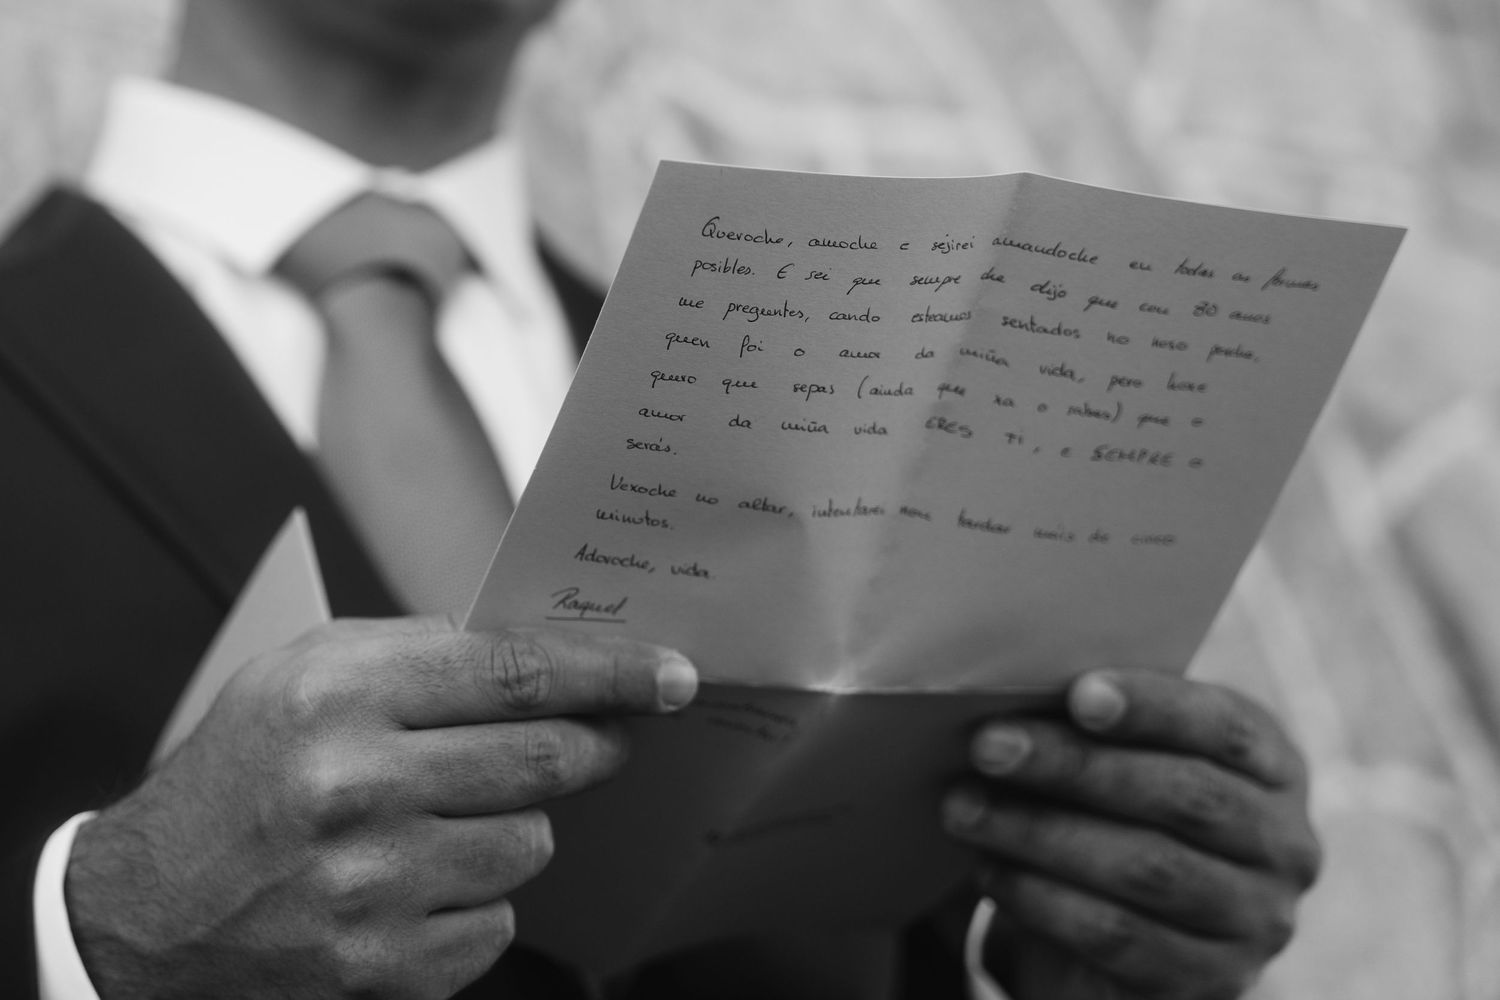 Queroche, amoche e sejirei amandoche en todas as formas
posibles. E sei que sempre che dijo que con 80 anos
me preguntes, cando esteamos sentados no noso porche,
quen foi o amor da miña vida, pero hoxe
quero que sepas (ainda que xa o sabes) que o
amor da miña vida ERES TI, e SEMPRE o
serás.
Vexoche no altar, intentarei non tardar mais de cinco
minutos.
Adoroche, vida.
Raquel